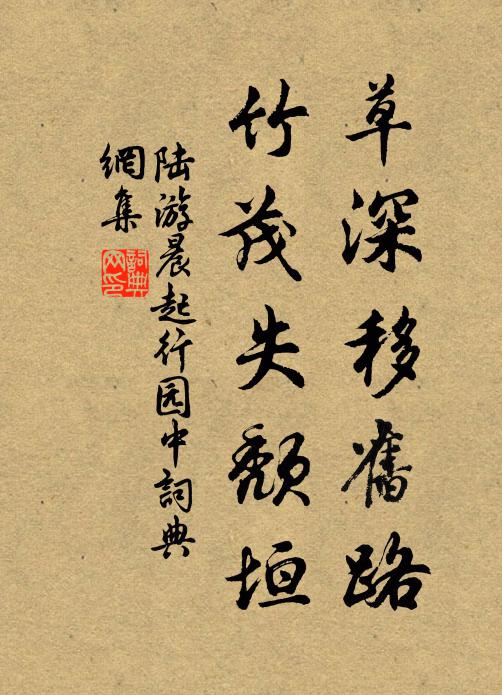 草深移舊路
竹茂失頹垣
陆游晨起行园中詞典
網集
詞典网印